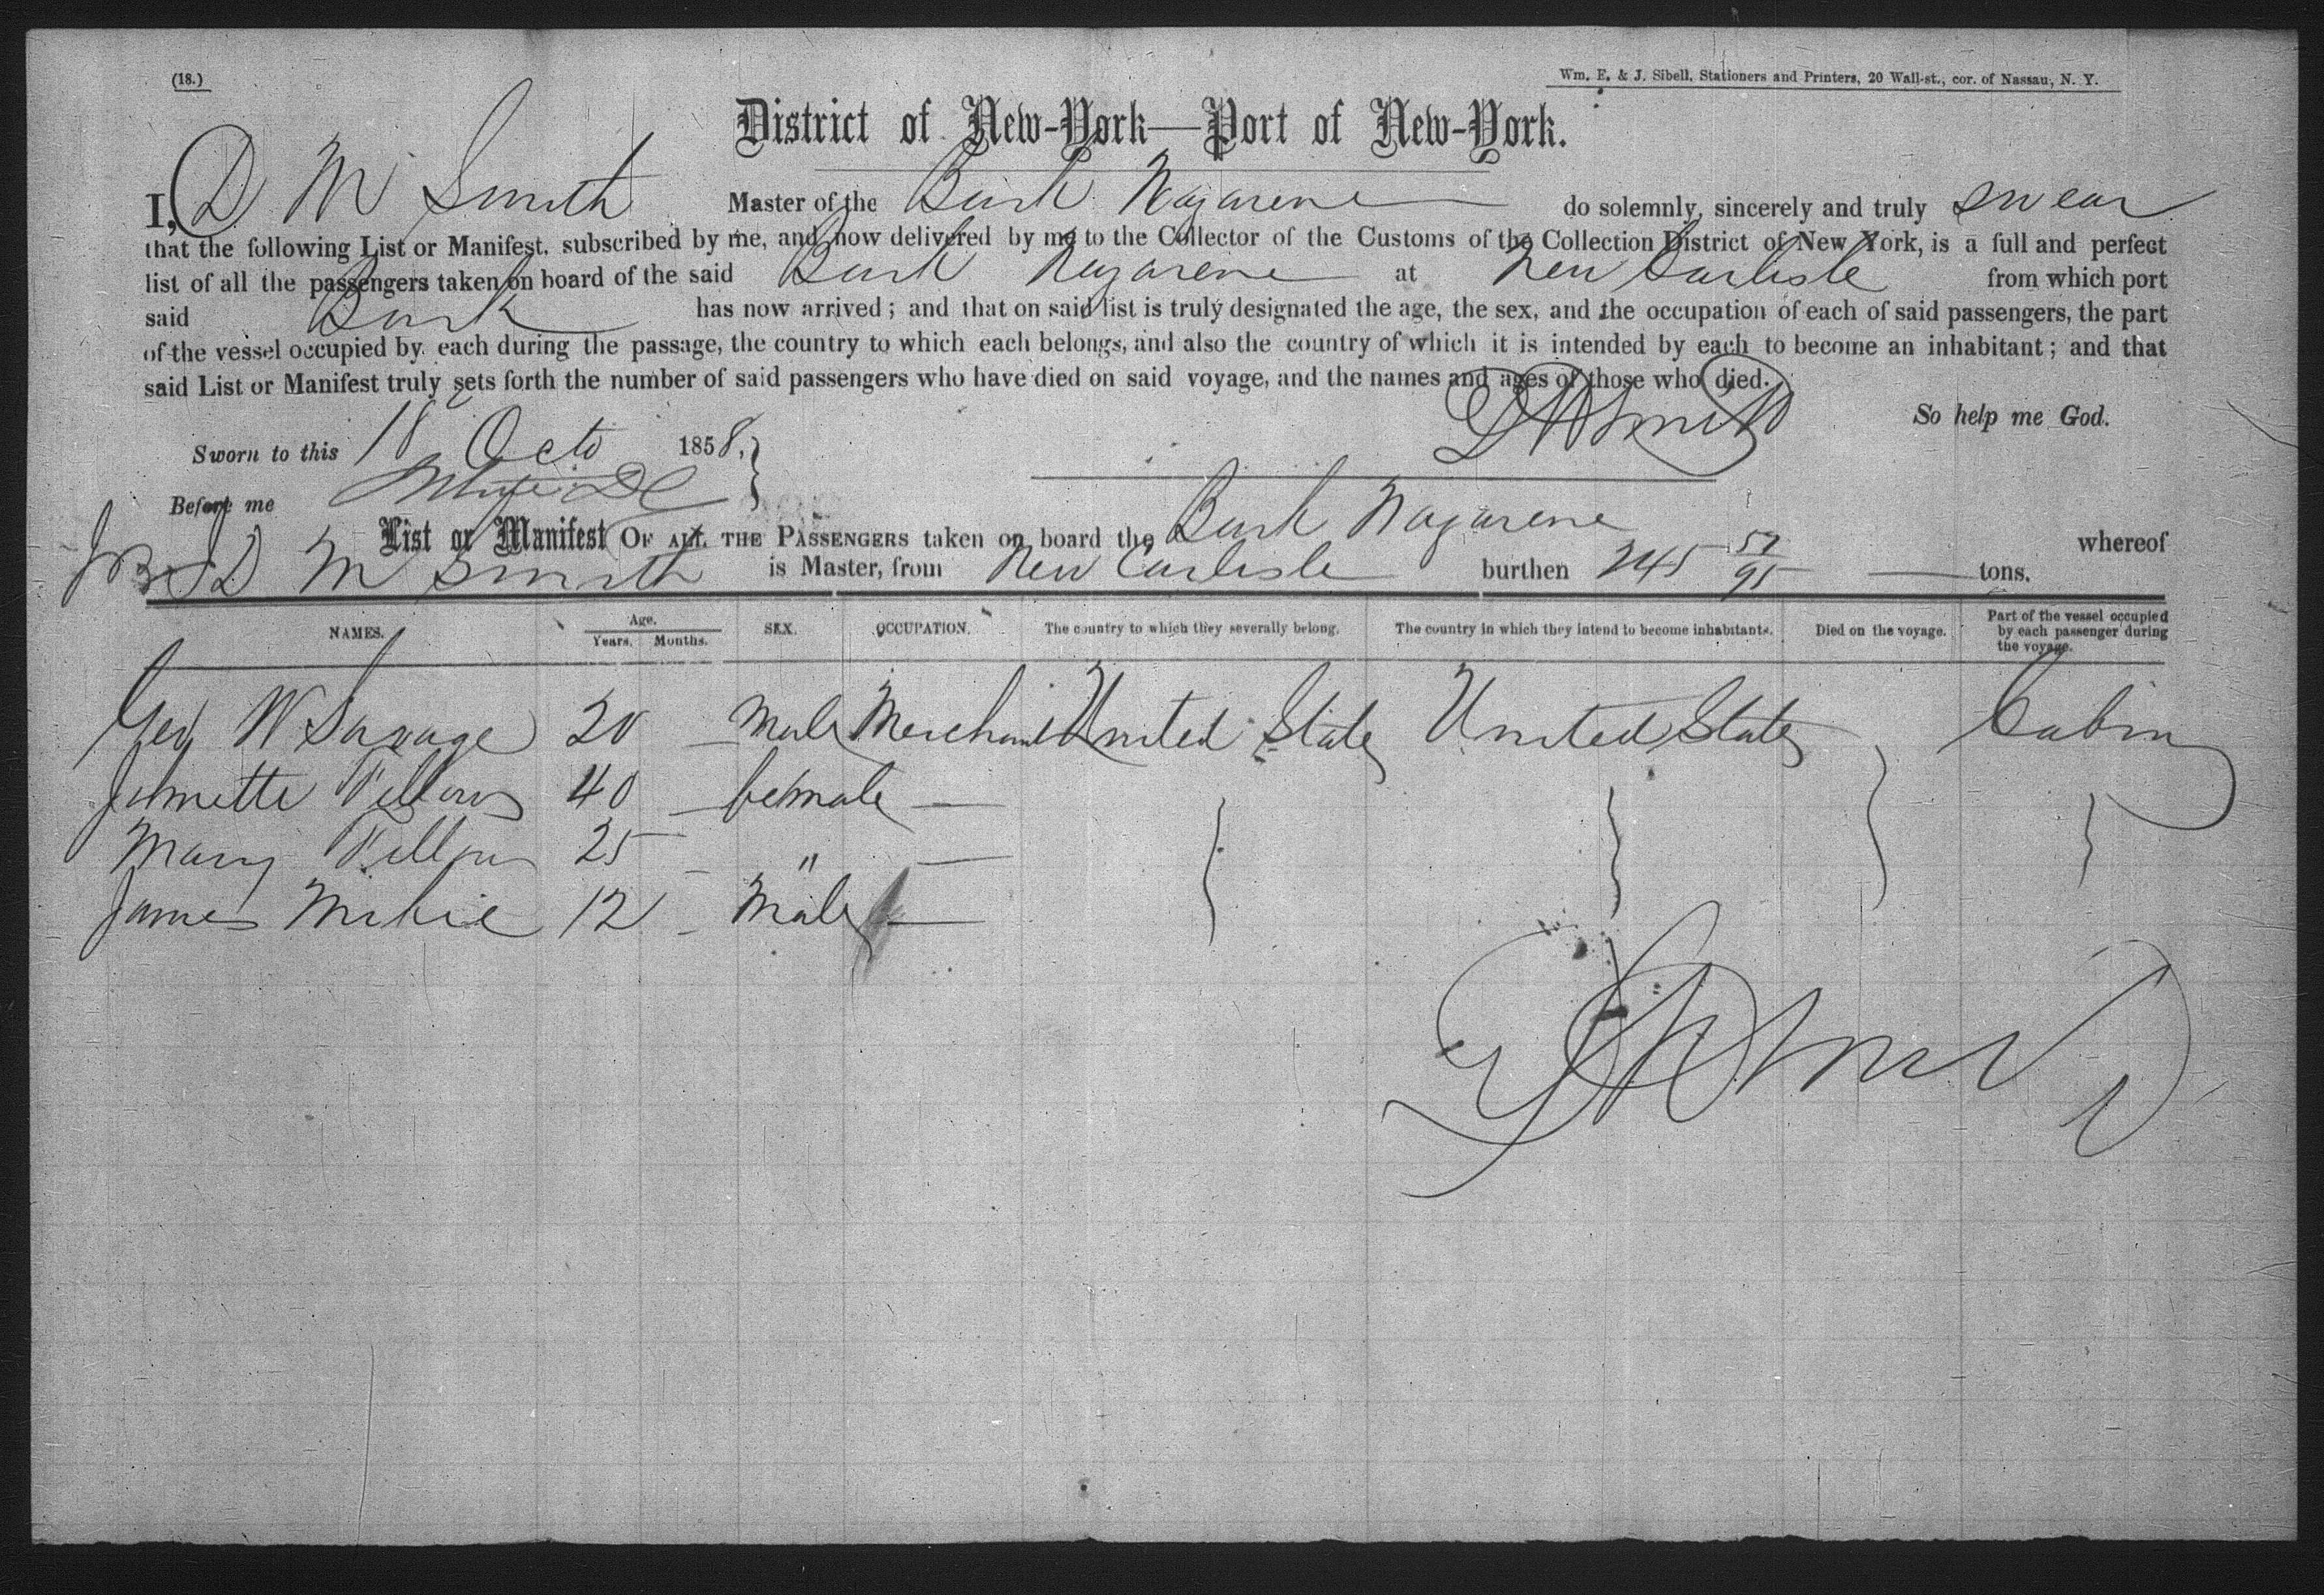 (18.)
Wm. E. & J. Sibell, Stationers and Printers, 20 Wall-st., cor. of Nassau, N. Y.
District of New-York—Port of New-York.
I, D M Smith Master of the Bark Nazarene do solemnly, sincerely and truly swear
that the following List or Manifest, subscribed by me, and now delivered by me to the Collector of the Customs of the Collection District of New York, is a full and perfect
list of all the passengers taken on board of the said Bark Nazarene at New Carlisle from which port
said Bark has now arrived; and that on said list is truly designated the age, the sex, and the occupation of each of said passengers, the part
of the vessel occupied by each during the passage, the country to which each belongs, and also the country of which it is intended by each to become an inhabitant; and that
said List or Manifest truly sets forth the number of said passengers who have died on said voyage, and the names and ages of those who died.
So help me God.
D M Smith
Sworn to this 18 Octo 1858,
Before me
List or Manifest OF ALL THE PASSENGERS taken on board the Bark Nazarene whereof
D M Smith is Master, from New Carlisle burthen 245 57/95 tons.
NAMES. Age. Years. Months. SEX. OCCUPATION. The country to which they severally belong. The country in which they intend to become inhabitants. Died on the voyage. Part of the vessel occupied by each passenger during the voyage.
Geo W Savage 20 Male Merchant United States United States Cabin
40 female —
Mary 25 " —
James 12 Male —
D M Smith